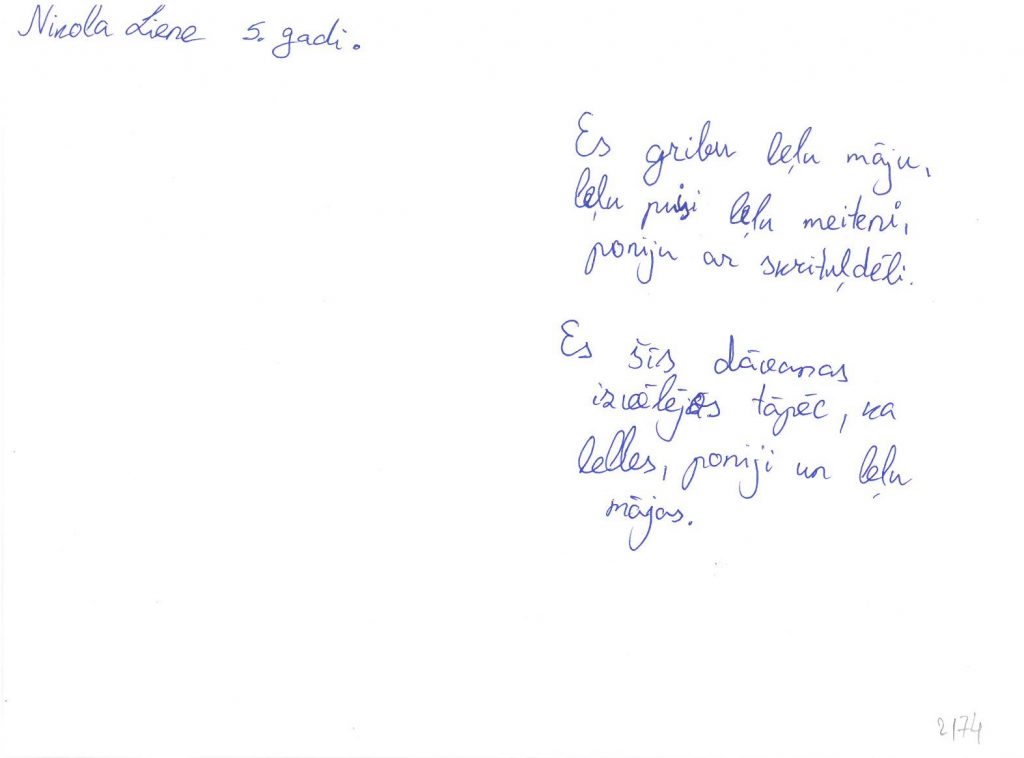 Nikola Liene 5. gadi.
Es gribu leļu māju,
leļu puisi leļu meiteni,
poniju ar skrituļdēli.
Es šīs dāvanas
izvēlējos tāpēc, ka
lelles, poniji un leļu
mājas.
2/74